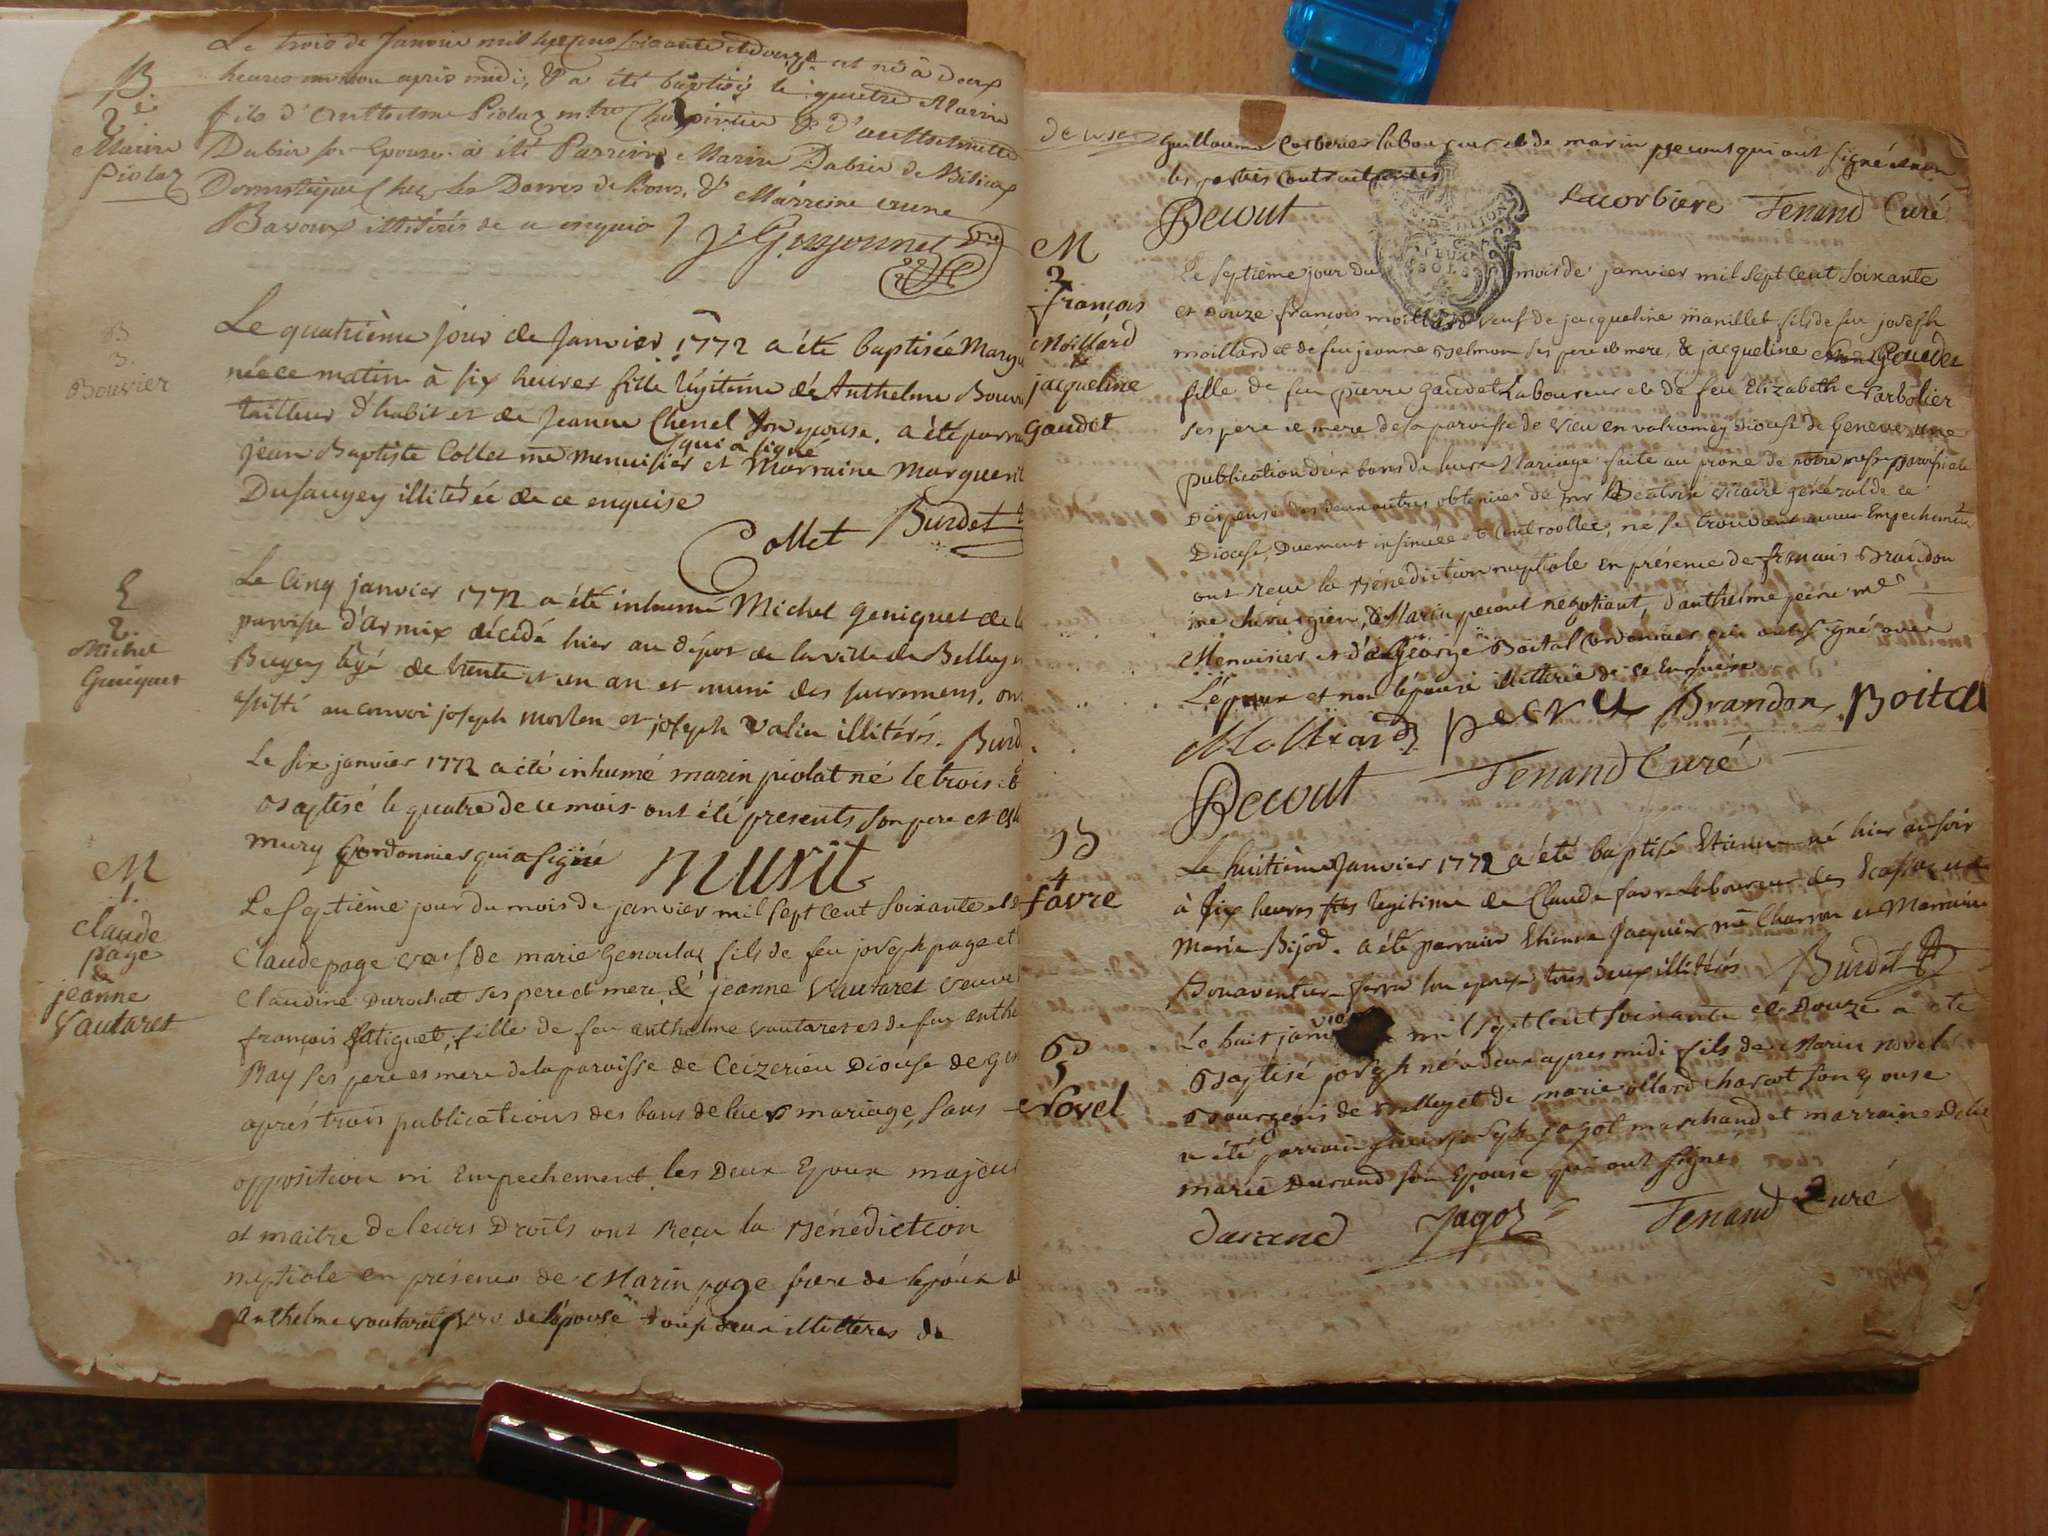 B.
2e
Marin
Piolaz
Le trois de Janvier mil sept cens soixante et douze est né à deux
heures après midi, & a été baptisé le quatre Marin
fils d'Anthelme Piolaz & d'anthelmette
Dubin son Epouse. a été Parrein Marin Dubin de
Domestique Chez les Dames de Bons, & Marreine
Bavoux illitérés de ce enquis
B
3.
Bouvier
Le quatrième jour de Janvier 1772 a été baptisée Margu
née ce matin à six heures fille légitime de Anthelme Bouv
tailleur d'habit et de Jeanne Chenel son epouse. a été parra
qui a signé
jean Baptiste Collet me menuisier et Marraine Marguerit
Dusaugey illitérée de ce enquise
Collet Burdet
E
2.
Michel
Guiguet
Le cinq janvier 1772 a été inhumé Michel Geniguet de l
paroisse d'armix décédé hier au dépot de la ville de Belley
Bugey âgé de trente et un an et muni des sacremens. on
assisté au convoi joseph morlen et joseph valin illitérés. Burd
Le six janvier 1772 a été inhumé marin piolat né le trois et
baptisé le quatre de ce mois. ont été presents son pere et
mury cordonnier qui a signé murit
M
1.
claude
page
&
jeanne
Vautaret
Le septième jour du mois de janvier mil sept cent soixante et d
Claude page veuf de marie Genoulaz fils de feu joseph page et
Claudine Durochat ses pere et mere, & jeanne Vautaret veuve
françois fatiguet, fille de feu anthelme vautaret et de feu anthe
Ray ses pere et mere de la paroisse de Ceizerieu Diocese de ge
aprés trois publications des bans de leur mariage, sans
opposition ni Empechement, les Deux Epoux majeu
et maitre de leurs Droits ont Reçu la Bénédiction
nuptiale en présence de Marin page frere de lepoux
anthelme vautaret frere de l'épouse tous deux illitteres de
de ce
guillaume Corbier laboureur et de marin pecout qui ont signé et non
les parties contractantes
Pecout Lacorbiere Tenand Curé
M
2
françois
Moillard
&
jacqueline
gaudet
DEUX
SOLS
Le septième jour du mois de janvier mil sept cent soixante
et douze françois moillard veuf de jacqueline manillet fils de feu joseph
moillard et de feu jeanne Belmon ses pere et mere, & jacqueline Gaudet
fille de feu pierre gaudet Laboureur et de feu Elizabeth Carbolier
ses pere et mere de la paroisse de vieu en valromey diocese de Geneve, une
publication des bans de leur Mariage faite au prone de notre messe paroissiale
Dispense des deux autres obtenües de mr vicaire général de ce
Diocese, Duement insinuée et controollée, ne se trouvant aucun Empechement
ont reçu la Bénédiction nuptiale en présence de françois Brandon
me chirurgien, de Marin pecout negotiant, d'anthelme peeru me
Menuisier et de George Boital Cordonnier qui ont signé avec
Lepoux et non l'épouse illitterée de ce Enquise
Mollliard peeru Brandon Boital
Pecout Tenand Curé
B
4
favre
Le huitième Janvier 1772 a été baptisé Etienne né hier au soir
à six heures fils legitime de Claude favre Laboureur des Ecassaz et
Marie Bijod. a été parrain Etienne Jacquier me Charron et Marraine
Bonaventure son epouse tous deux illitérés Burdet
B
5
Novel
Le huit janvier mil sept cent soixante et Douze a été
Baptisé joseph né a deux apres midi fils de Marin novel
Bourgeois de Belley et de marie ollard charcot son Epouse
a été parrain joseph jagot marchand et marraine
marie Durand son Epouse qui ont signé
Durand Jagot Tenand Curé